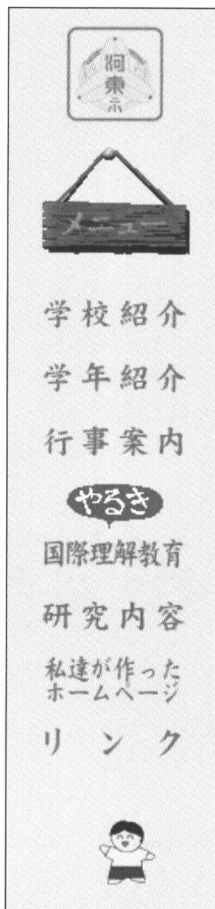 河東小
メニュー
学校紹介
学年紹介
行事案内
やるき
国際理解教育
研究内容
私達が作った
ホームページ
リンク